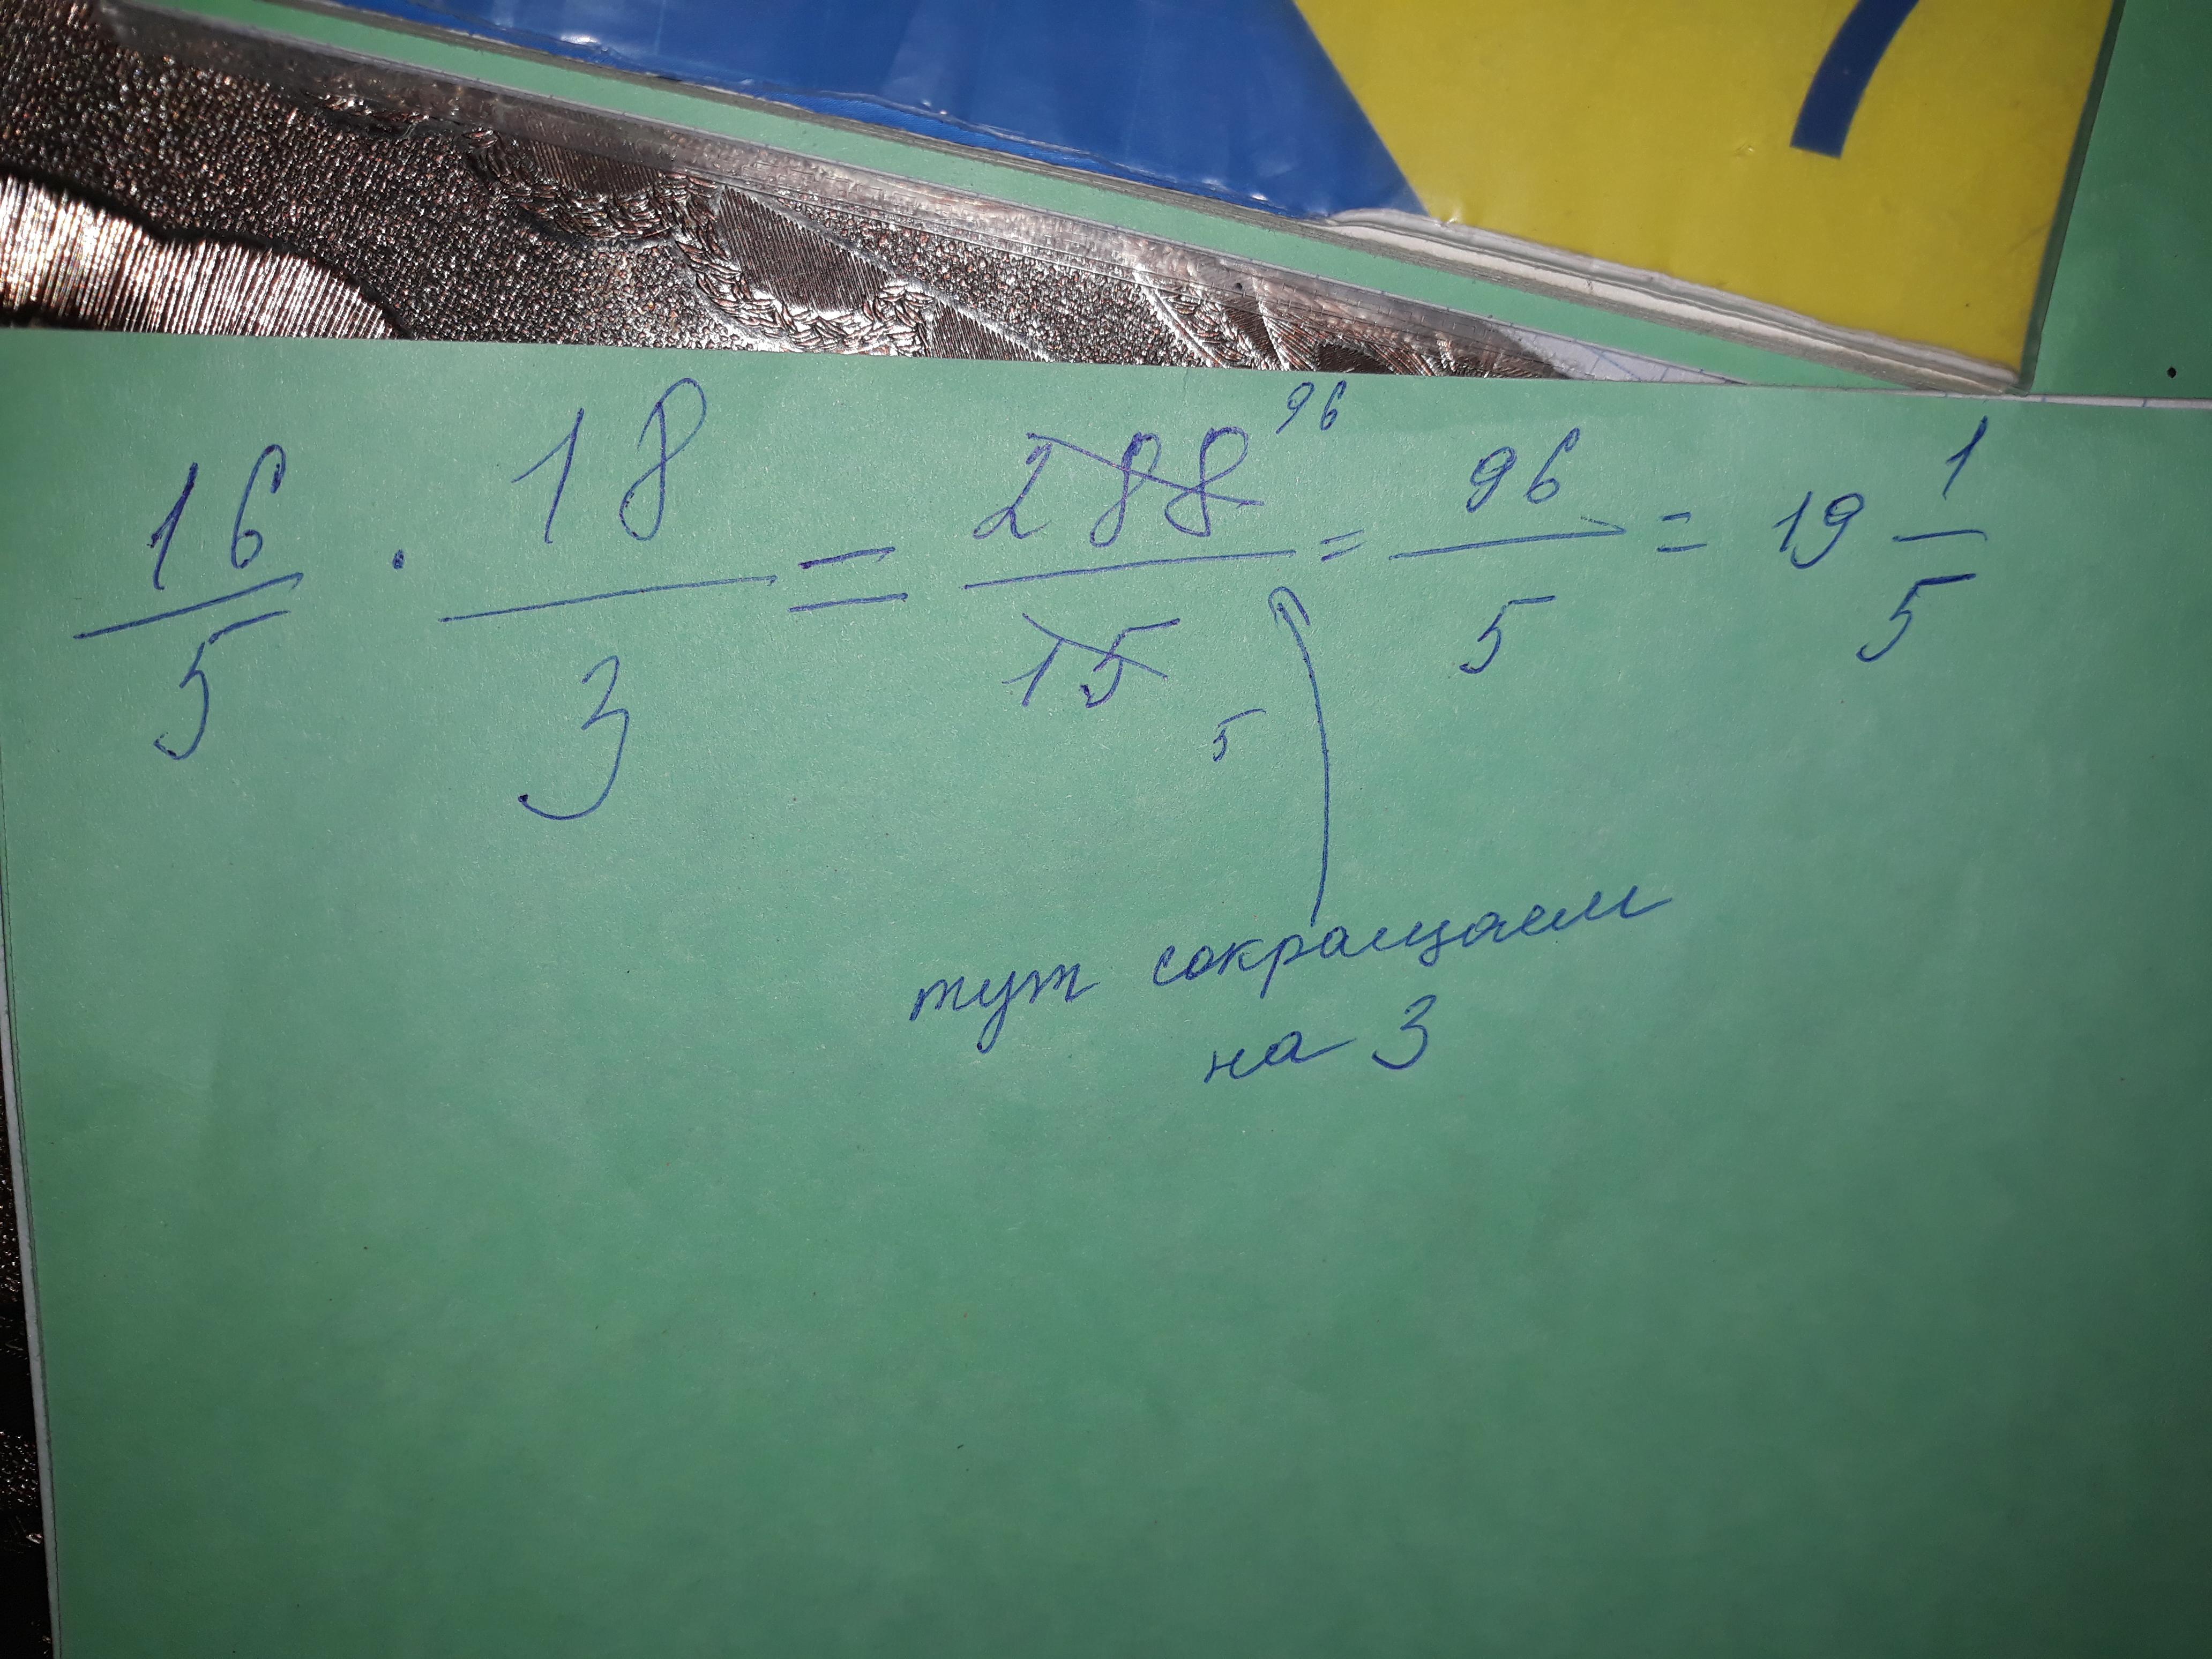 16/5 · 18/3 = 288/15 = 96/5 = 19 1/5
96
5
тут сокращаем
на 3